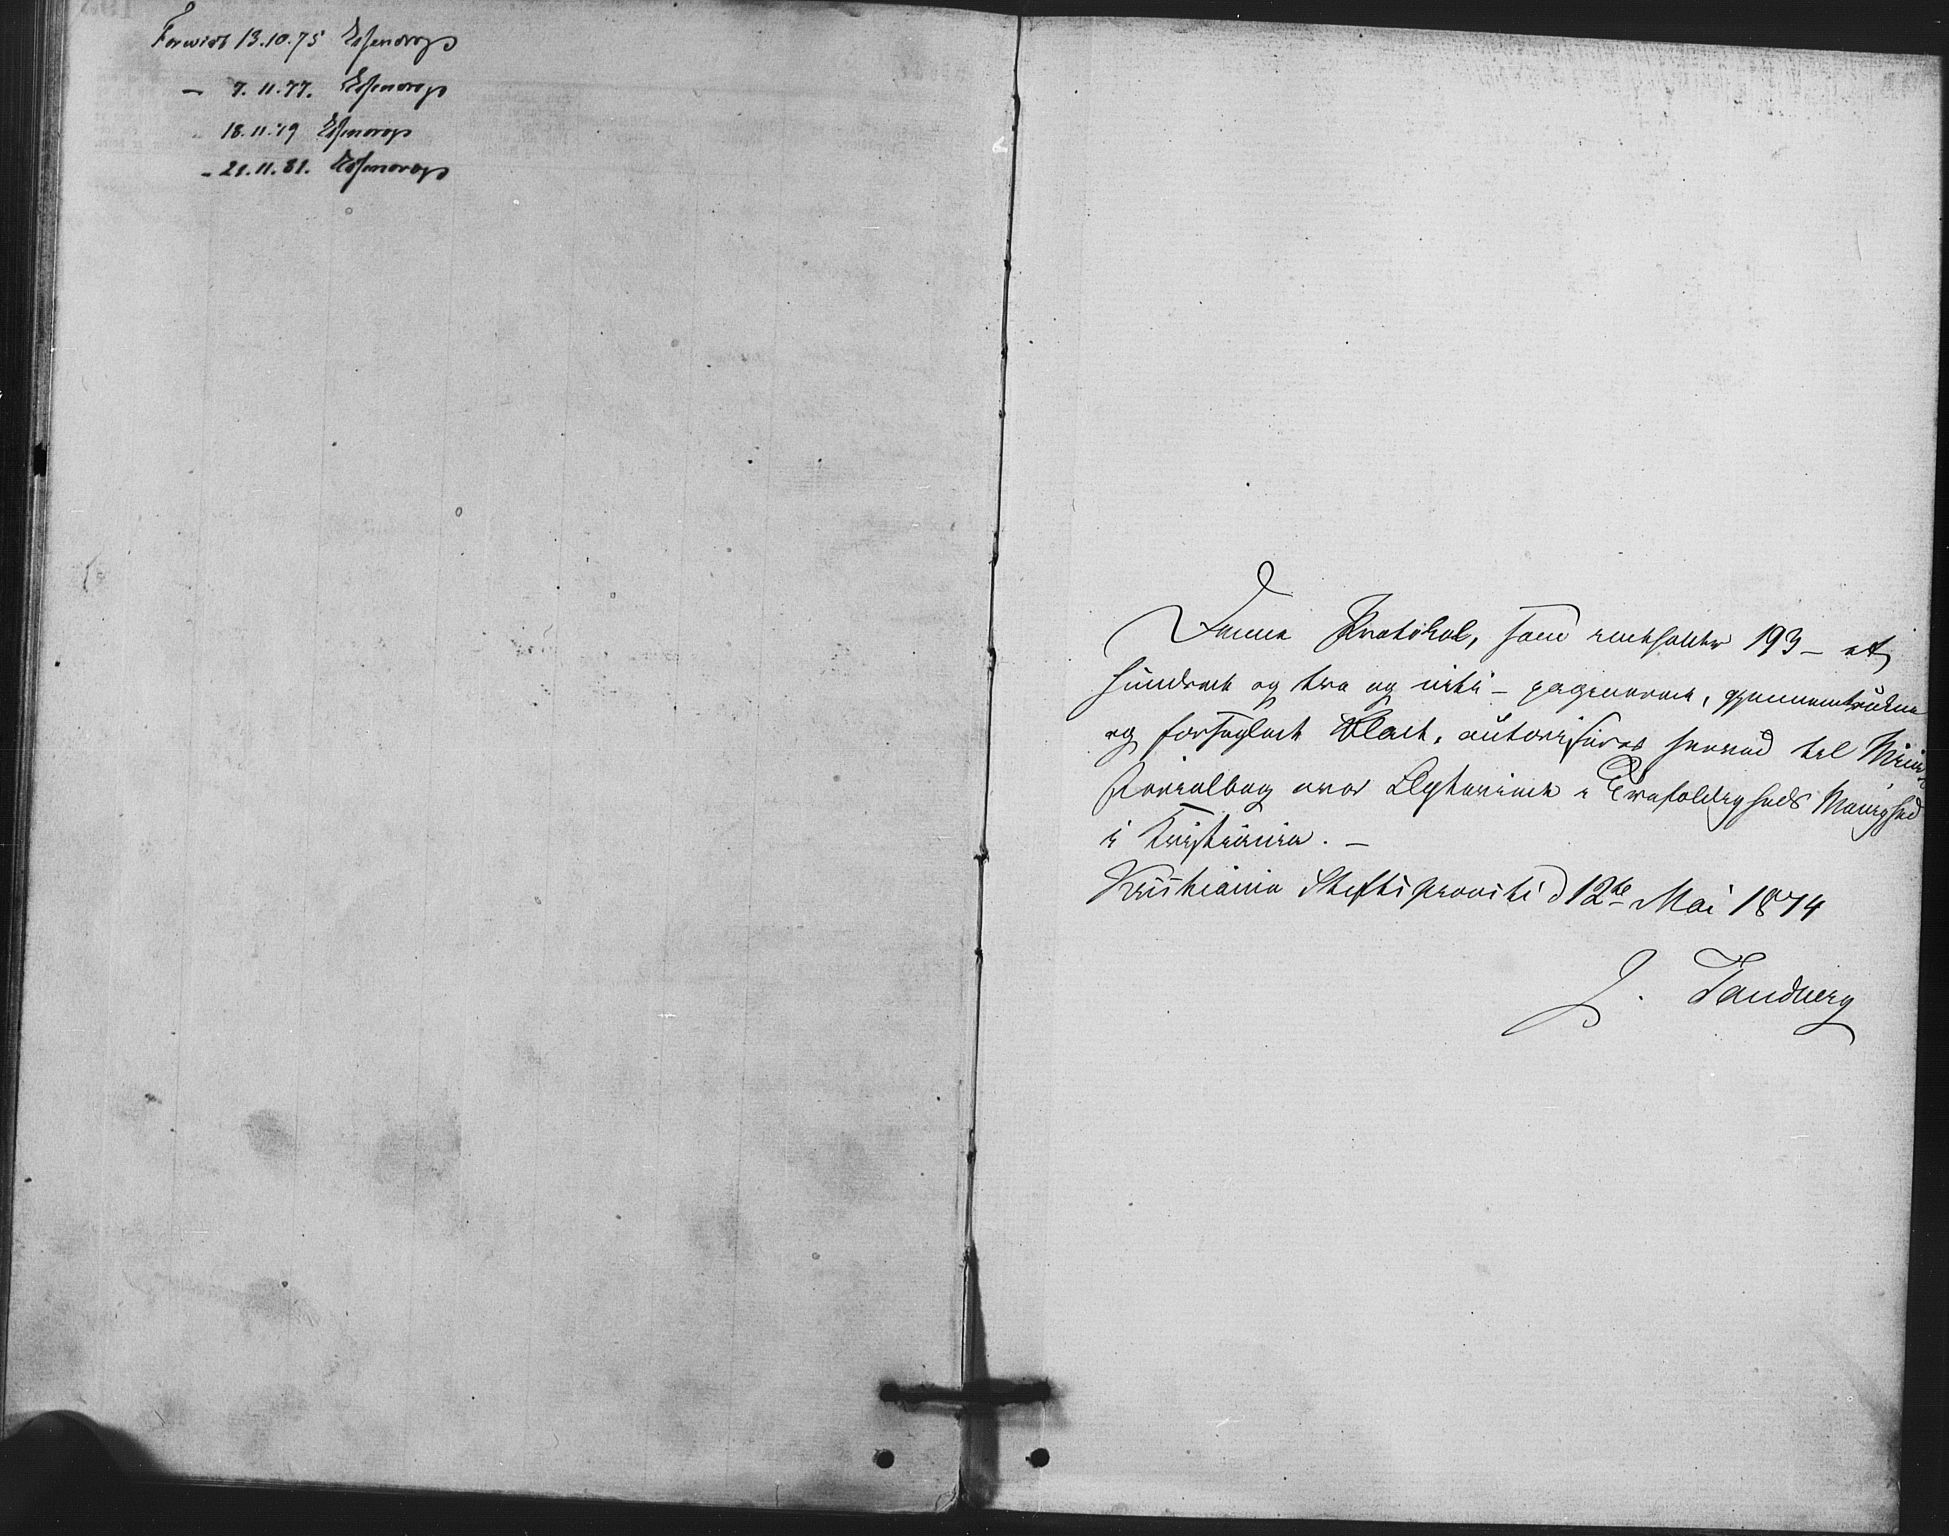 Forevist 13.10.75 Essendrop
— 7.11.77. Essendrop
- 18.11.79 Essendrop
- 21.11.81. Essendrop
Denne Protokol, som indeholder 193 – et
hundrede og tre og niti – paginerede, gjennemtrukne
og forseglede Blade, autoriseres herved til Mini-
sterialbog over Ægteviede i Trefoldigheds Menighed
i Kristiania. –
Kristiania Stiftsprovsti d 12te Mai 1874
J. Tandberg